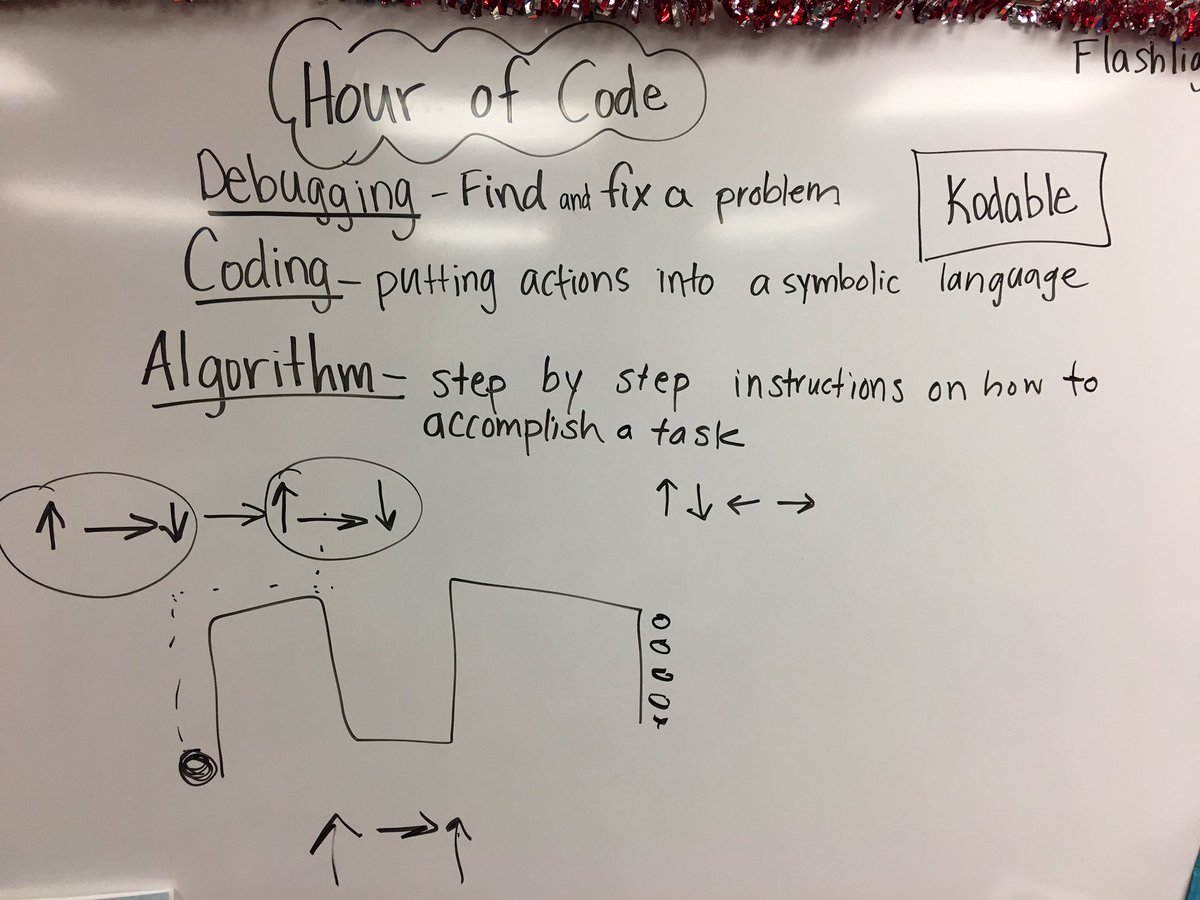 Hour of Code
Flashlig
Debugging - Find and fix a problem
Kodable
Coding - putting actions into a symbolic language
Algorithm - step by step instructions on how to
accomplish a task
↑ → ↓ → ↑ → ↓
↑ ↓ ← →
↑ → ↑